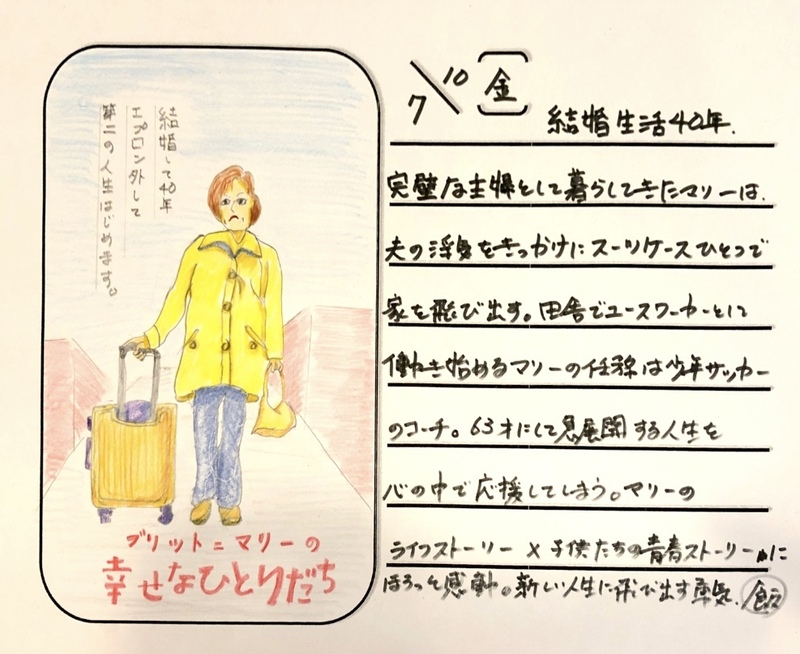 結婚して40年
エプロン外して
第二の人生はじめます。
ブリット=マリーの
幸せなひとりだち
7/10 [金]
結婚生活40年.
完璧な主婦として暮らしてきたマリーは.
夫の浮気をきっかけにスーツケースひとつで
家を飛び出す。田舎でユースワーカーとして
働き始めるマリーの任務は少年サッカー
のコーチ。63才にして急展開する人生を
心の中で応援してしまう。マリーの
ライフストーリー×子供たちの青春ストーリーに
ほろっと感動。新しい人生に飛び出す勇気.
飯